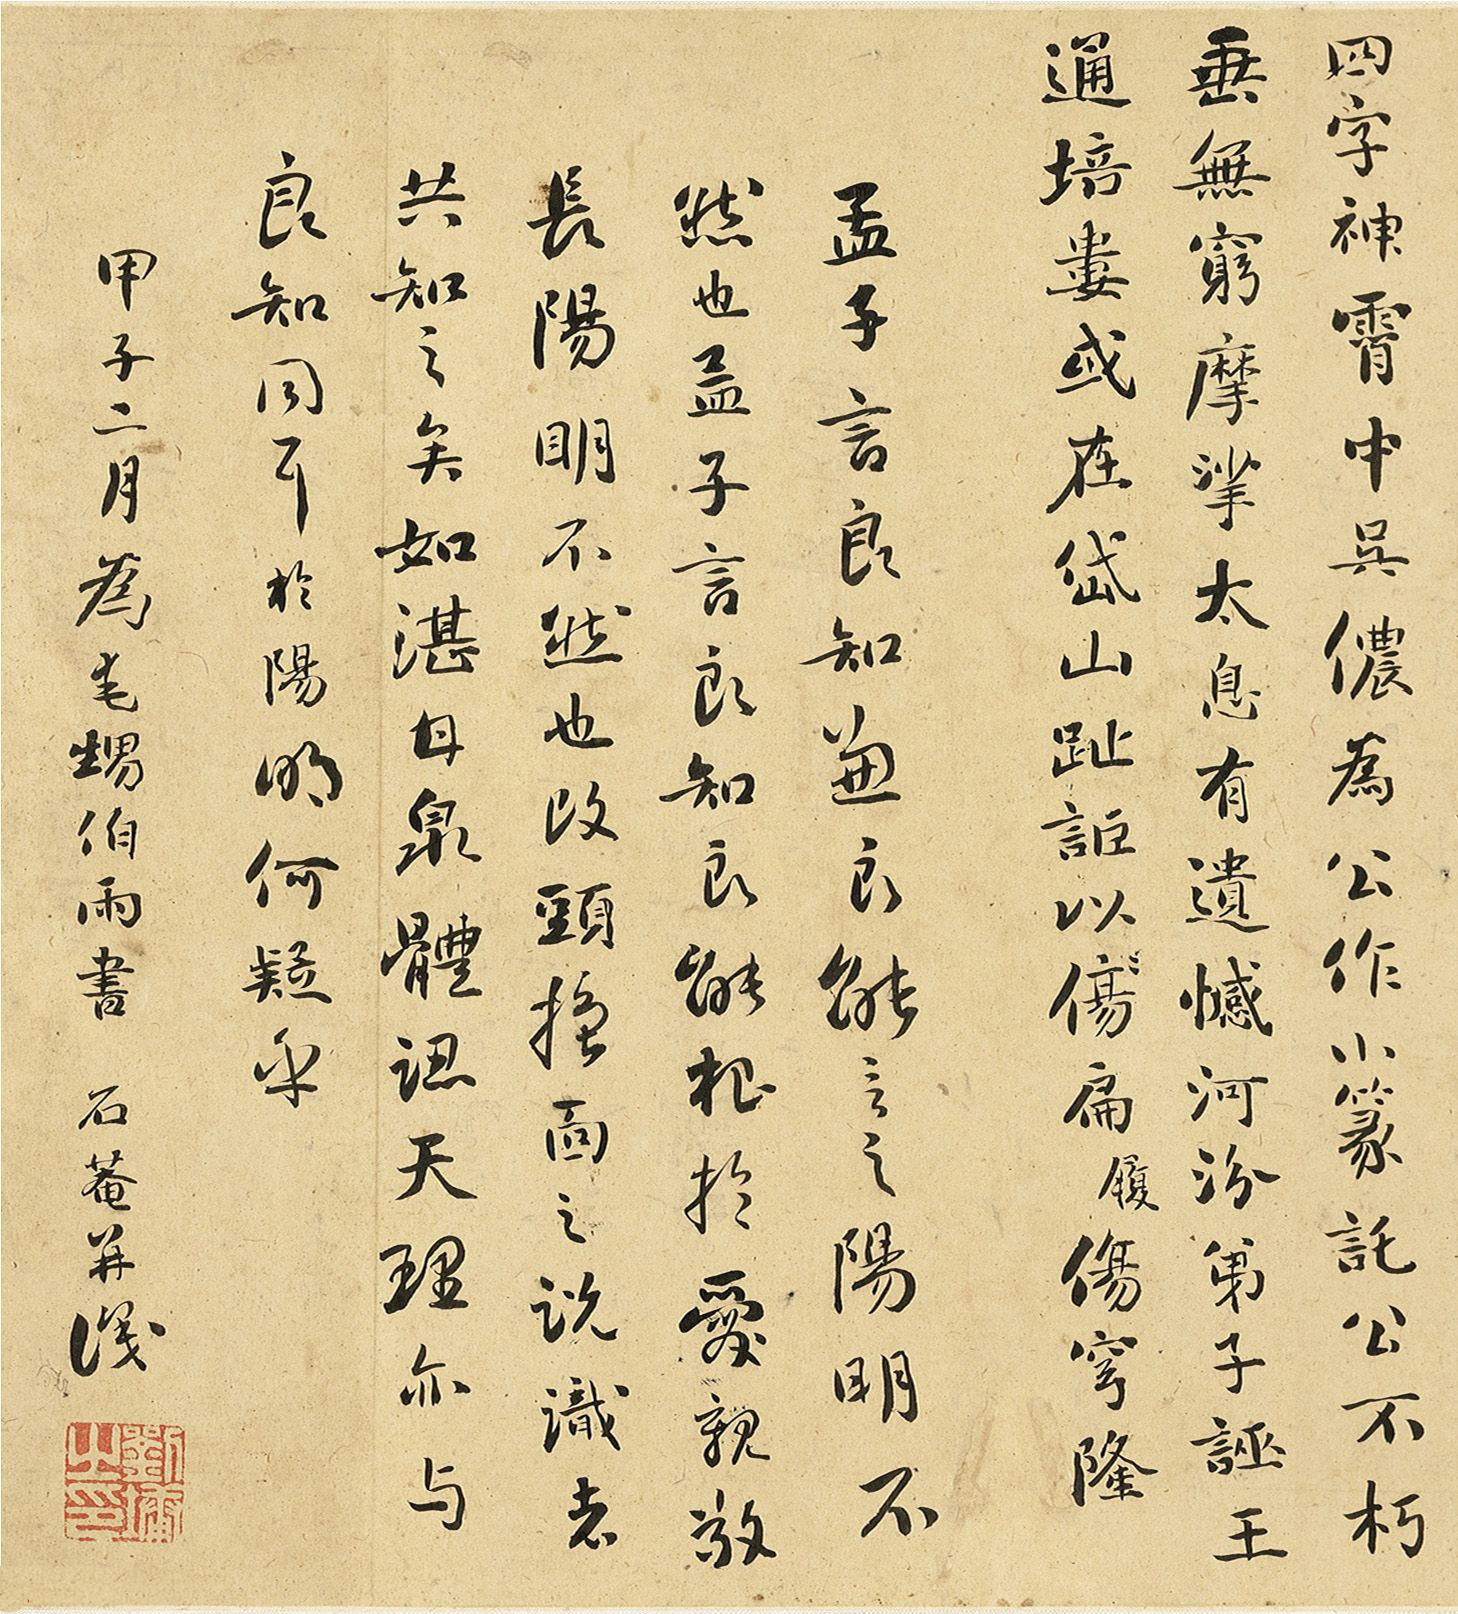 四字神霄中吳儂為公作小篆託公不朽
垂無窮摩挲太息有遺憾河汾弟子誣王
通培塿或在岱山趾詎以傷扁履傷穹隆
孟子言良知兼良能言之陽明不
然也孟子言良知良能根於愛親敬
長陽明不然也改頭換面之說識者
共知之矣如湛甘泉體認天理亦与
良知同耳於陽明何疑乎
甲子二月為毛甥伯雨書 石菴并識
劉墉之印